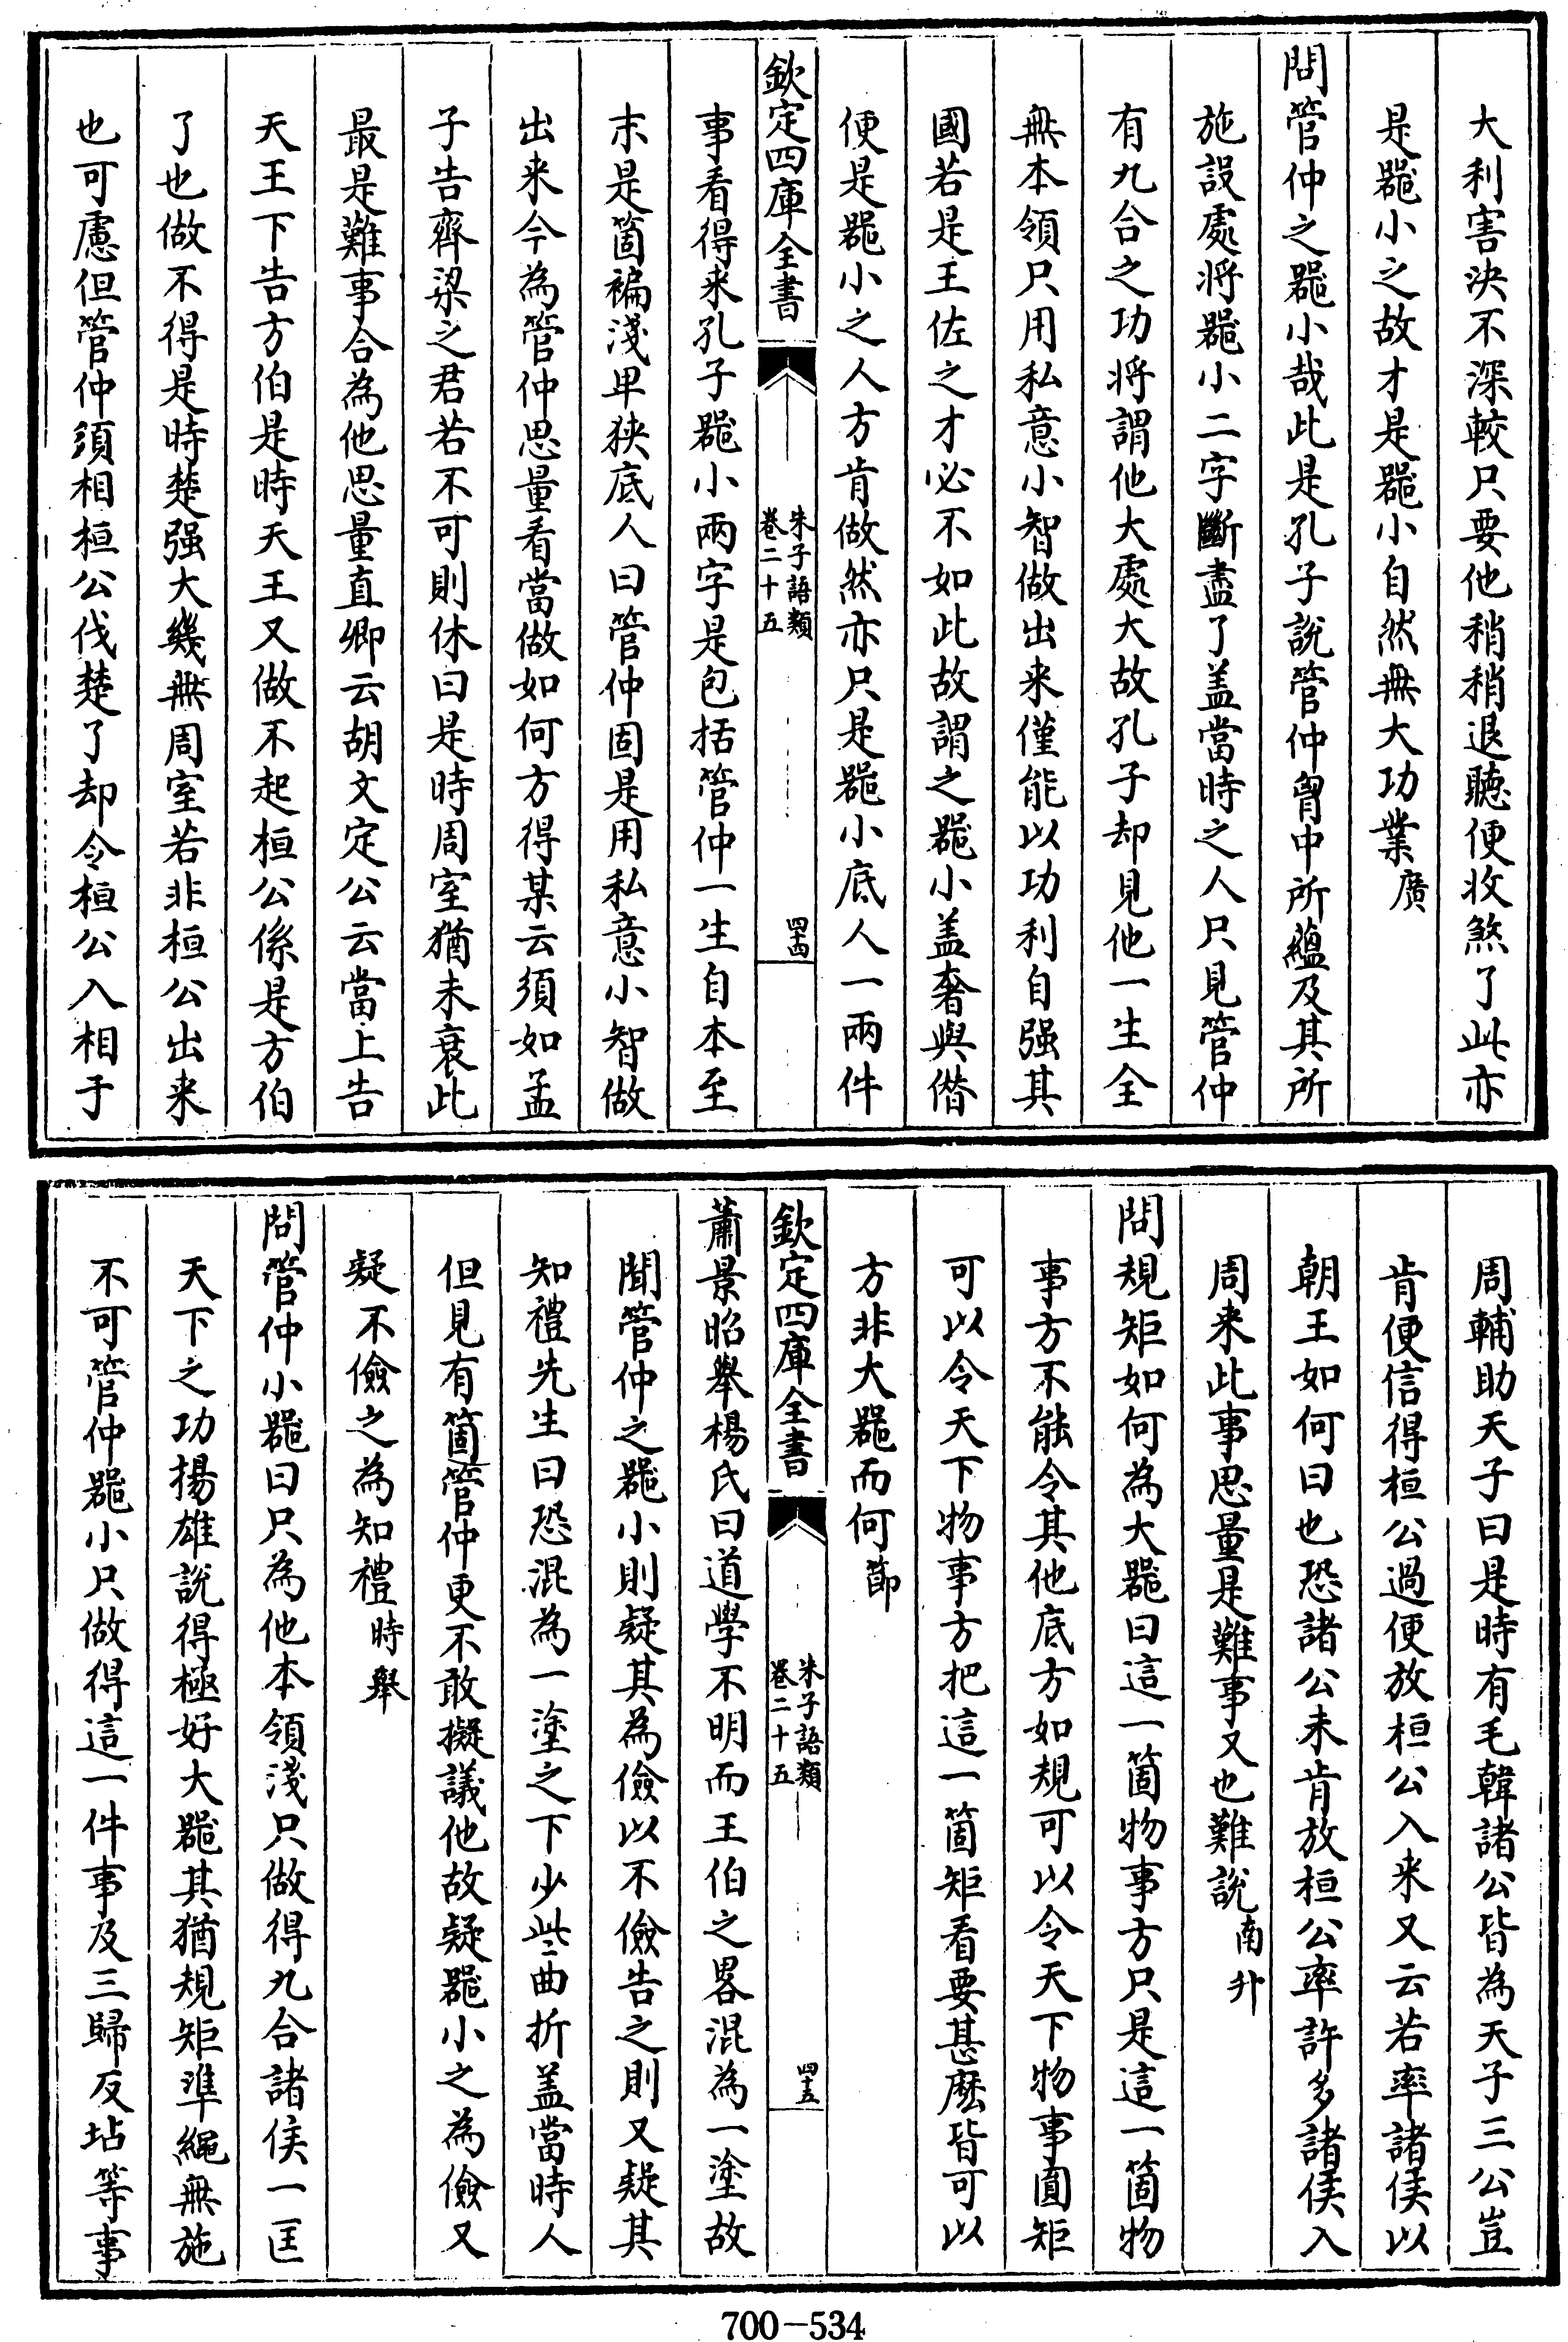 大利害決不深較只要他稍稍退聽便收煞了此亦
是器小之故才是器小自然無大功業廣
問管仲之器小哉此是孔子說管仲胷中所蘊及其所
施設處將器小二字斷盡了盖當時之人只見管仲
有九合之功將謂他大處大故孔子却見他一生全
無本領只用私意小智做出来僅能以功利自强其
國若是王佐之才必不如此故謂之器小盖奢與僭
便是器小之人方肯做然亦只是器小底人一兩件
欽定四庫全書
朱子語類
卷二十五
四十四
事看得来孔子器小兩字是包括管仲一生自本至
末是箇褊淺卑狹底人曰管仲固是用私意小智做
出来今為管仲思量看當做如何方得某云須如孟
子告齊梁之君若不可則休曰是時周室猶未衰此
最是難事合為他思量直卿云胡文定公云當上告
天王下告方伯是時天王又做不起桓公係是方伯
了也做不得是時楚强大幾無周室若非桓公出来
也可慮但管仲須相桓公伐楚了却令桓公入相于
周輔助天子曰是時有毛韓諸公皆為天子三公豈
肯便信得桓公過便放桓公入来又云若率諸侯以
朝王如何曰也恐諸公未肯放桓公率許多諸侯入
周来此事思量是難事又也難說南升
問規矩如何為大器曰這一箇物事方只是這一箇物
事方不能令其他底方如規可以令天下物事圓矩
可以令天下物事方把這一箇矩看要甚麽皆可以
方非大器而何節
欽定四庫全書
朱子語類
卷二十五
四十五
蕭景昭舉楊氏曰道學不明而王伯之畧混為一塗故
聞管仲之器小則疑其為儉以不儉告之則又疑其
知禮先生曰恐混為一塗之下少些曲折盖當時人
但見有箇管仲更不敢擬議他故疑器小之為儉又
疑不儉之為知禮時舉
問管仲小器曰只為他本領淺只做得九合諸侯一匡
天下之功揚雄說得極好大器其猶規矩準繩無施
不可管仲器小只做得這一件事及三歸反坫等事
700-534